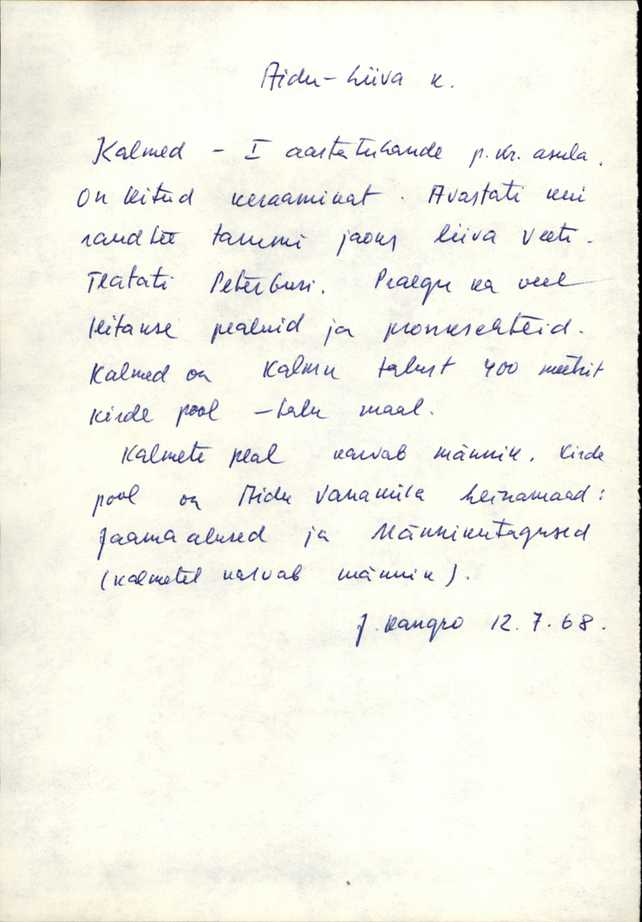 Aidu-Liiva k.
Kalmed - I aastatuhande p.Kr. asula.
On leitud keraamikat. Avastati kui
raudtee tammi jaoks liiva veeti.
Teatati Peterburi. Praegu ka veel
leitakse pealuid ja pronksehteid.
Kalmed on Kalmu talust 400 meetrit
kirde pool - talu maal.
Kalmete peal kasvab männik. Kirde
pool on Aidu Vanamõisa heinamaad:
Jaamaalused ja Männikutagused
(kalmetel kasvab männik).
J. Kangro 12.7.68.